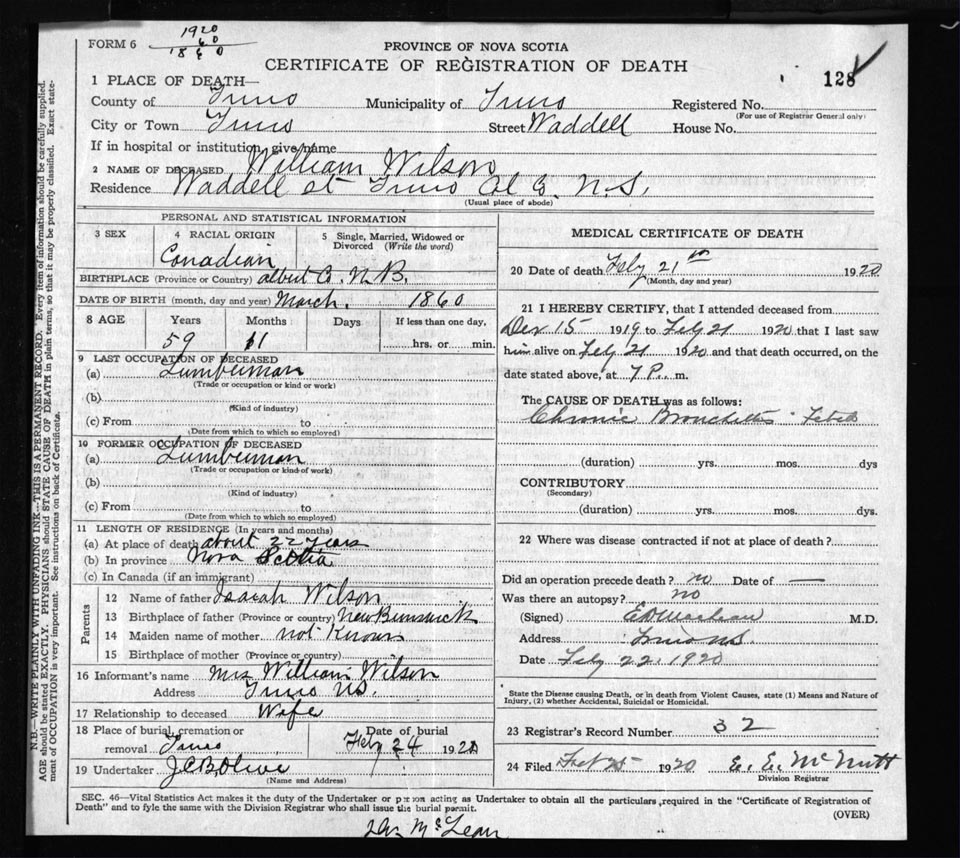 FORM 6
1920
60
1860
PROVINCE OF NOVA SCOTIA
CERTIFICATE OF REGISTRATION OF DEATH
128
1 PLACE OF DEATH—
County of Truro Municipality of Truro Registered No.
(For use of Registrar General only)
City or Town Truro Street Waddell House No.
If in hospital or institution, give name
2 NAME OF DECEASED William Wilson
Residence Waddell st Truro Col Co. N.S.
(Usual place of abode)
PERSONAL AND STATISTICAL INFORMATION
3 SEX 4 RACIAL ORIGIN 5 Single, Married, Widowed or Divorced (Write the word)
Canadian
BIRTHPLACE (Province or Country) Albert Co. N.B.
DATE OF BIRTH (month, day and year) March. 1860
8 AGE Years Months Days If less than one day,
59 11 hrs. or min.
9 LAST OCCUPATION OF DECEASED
(a) Lumberman
(Trade or occupation or kind or work)
(b)
(Kind of industry)
(c) From to
(Date from which to which so employed)
10 FORMER OCCUPATION OF DECEASED
(a) Lumberman
(Trade or occupation or kind of work)
(b)
(Kind of industry)
(c) From to
(Date from which to which so employed)
11 LENGTH OF RESIDENCE (In years and months)
(a) At place of death about 22 years
(b) In province Nova Scotia
(c) In Canada (if an immigrant)
Parents
12 Name of father Isaiah Wilson
13 Birthplace of father (Province or country) New Brunswick
14 Maiden name of mother not Known
15 Birthplace of mother (Province or country)
16 Informant's name Mrs William Wilson
Address Truro NS.
17 Relationship to deceased Wife
18 Place of burial, cremation or removal Truro Date of burial Feby 24 1920
19 Undertaker
(Name and Address)
MEDICAL CERTIFICATE OF DEATH
20 Date of death Feby 21st 1920
(Month, day and year)
21 I HEREBY CERTIFY, that I attended deceased from
Dec 15 1919 to Feby 21 1920 that I last saw
him alive on Feby 21 1920 and that death occurred, on the
date stated above, at 7 P. m.
The CAUSE OF DEATH was as follows:
Chronic Bronchitis
(duration) yrs. mos. dys
CONTRIBUTORY
(Secondary)
(duration) yrs. mos. dys.
22 Where was disease contracted if not at place of death?
Did an operation precede death? no Date of —
Was there an autopsy? no
(Signed) M.D.
Address Truro NS
Date Feby 22. 1920
State the Disease causing Death, or in death from Violent Causes, state (1) Means and Nature of
Injury, (2) whether Accidental, Suicidal or Homicidal.
23 Registrar's Record Number 32
24 Filed Feb 25 1920 E. E. McNutt
Division Registrar
SEC. 46—Vital Statistics Act makes it the duty of the Undertaker or person acting as Undertaker to obtain all the particulars required in the "Certificate of Registration of
Death" and to fyle the same with the Division Registrar who shall issue the burial permit.
(OVER)
McLean
N.B.—WRITE PLAINLY WITH UNFADING INK—THIS IS A PERMANENT RECORD. Every item of information should be carefully supplied.
AGE should be stated EXACTLY. PHYSICIANS should STATE CAUSE OF DEATH in plain terms, so that it may be properly classified. Exact state-
ment of OCCUPATION is very important. See instructions on back of Certificate.